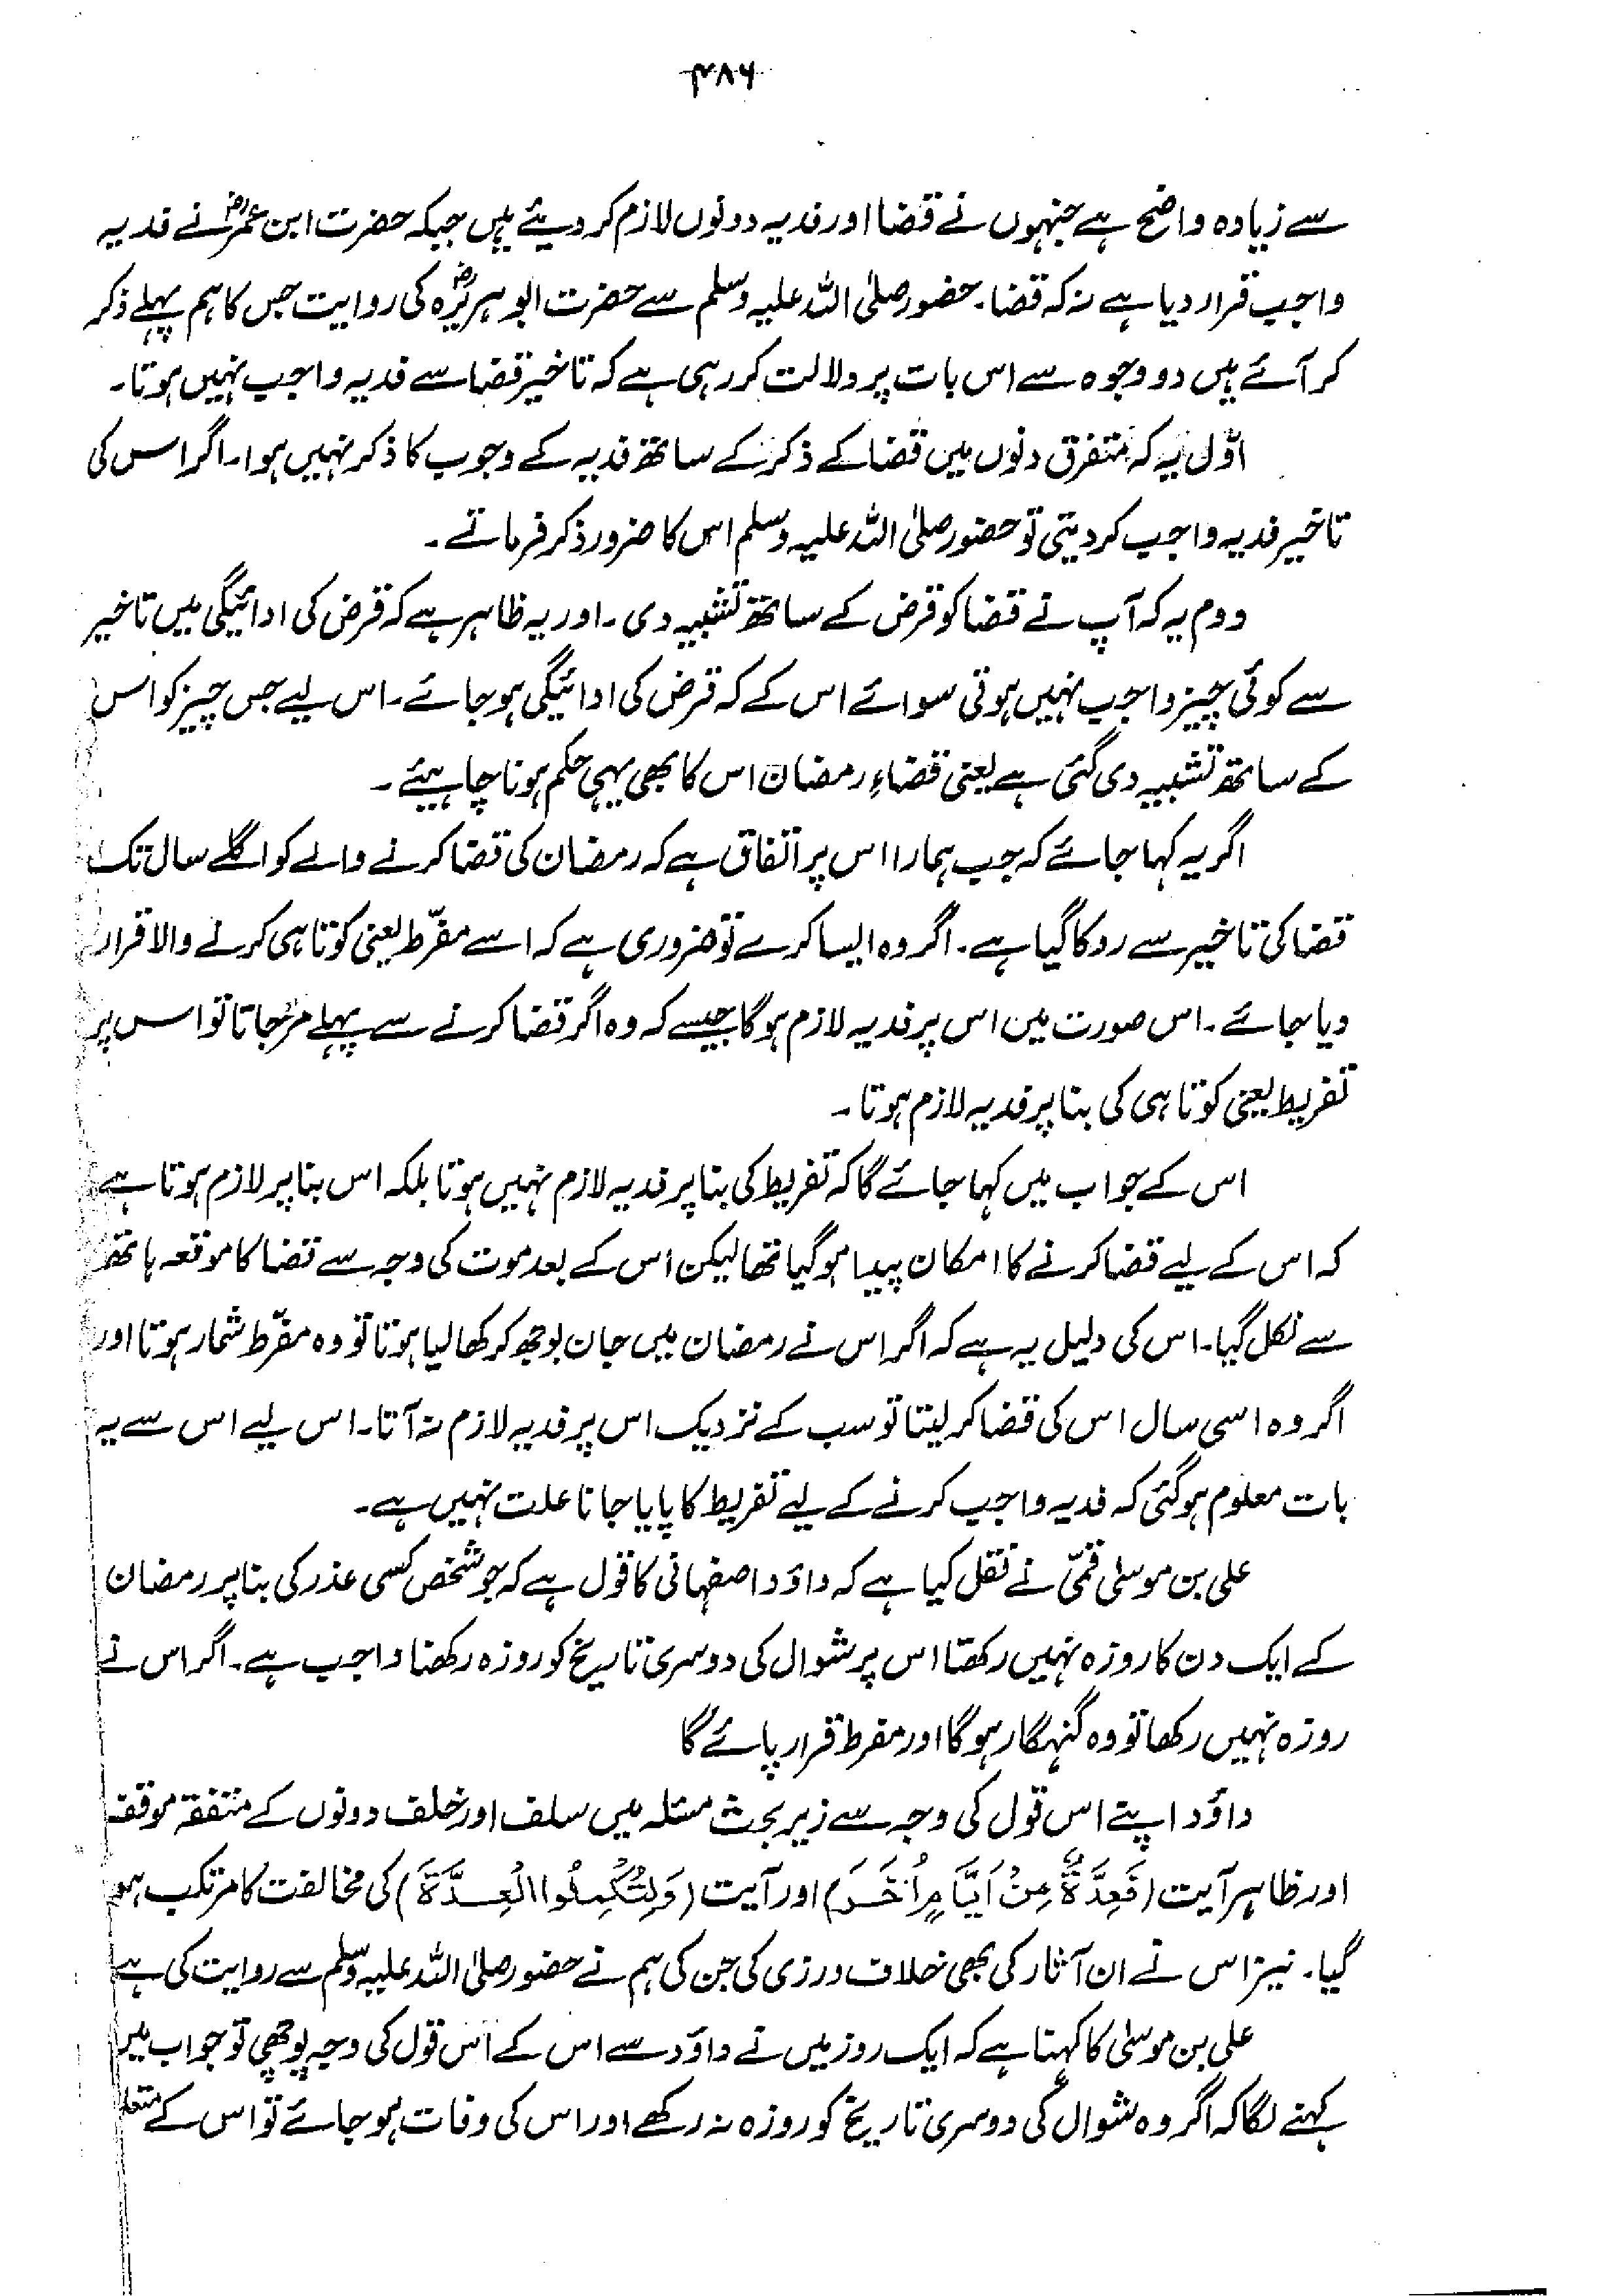 ۴۸۶
سے زیادہ واضح ہے جنہوں نے قضا اور فدیہ دونوں لازم کر دیئے ہیں جبکہ حضرت ابن عمرؓ نے فدیہ
واجب قرار دیا ہے نہ کہ قضا۔ حضور صلی اللہ علیہ وسلم سے حضرت ابوہریرہؓ کی روایت جس کا ہم پہلے ذکر
کر آئے ہیں دو وجوہ سے اس بات پر دلالت کر رہی ہے کہ تاخیر قضا سے فدیہ واجب نہیں ہوتا۔
اوّل یہ کہ متفرق دنوں میں قضا کے ذکر کے ساتھ فدیہ کے وجوب کا ذکر نہیں ہوا۔ اگر اس کی
تاخیر فدیہ واجب کر دیتی تو حضور صلی اللہ علیہ وسلم اس کا ضرور ذکر فرماتے۔
دوم یہ کہ آپ نے قضا کو قرض کے ساتھ تشبیہ دی۔ اور یہ ظاہر ہے کہ قرض کی ادائیگی میں تاخیر
سے کوئی چیز واجب نہیں ہوتی سوائے اس کے کہ قرض کی ادائیگی ہو جائے۔ اس لیے جس چیز کو اس
کے ساتھ تشبیہ دی گئی ہے یعنی قضاءِ رمضان اس کا بھی یہی حکم ہونا چاہیئے۔
اگر یہ کہا جائے کہ جب ہمارا اس پر اتفاق ہے کہ رمضان کی قضا کرنے والے کو اگلے سال تک
قضا کی تاخیر سے روکا گیا ہے۔ اگر وہ ایسا کرے تو ضروری ہے کہ اسے مفرّط یعنی کوتاہی کرنے والا قرار
دیا جائے۔ اس صورت میں اس پر فدیہ لازم ہوگا جیسے کہ وہ اگر قضا کرنے سے پہلے مر جاتا تو اس پر
تفریط یعنی کوتاہی کی بنا پر فدیہ لازم ہوتا۔
اس کے جواب میں کہا جائے گا کہ تفریط کی بنا پر فدیہ لازم نہیں ہوتا بلکہ اس بنا پر لازم ہوتا ہے
کہ اس کے لیے قضا کرنے کا امکان پیدا ہو گیا تھا لیکن اس کے بعد موت کی وجہ سے قضا کا موقعہ ہاتھ
سے نکل گیا۔ اس کی دلیل یہ ہے کہ اگر اس نے رمضان میں جان بوجھ کر کھا لیا ہوتا تو وہ مفرّط شمار ہوتا اور
اگر وہ اسی سال اس کی قضا کر لیتا تو سب کے نزدیک اس پر فدیہ لازم نہ آتا۔ اس لیے اس سے یہ
بات معلوم ہو گئی کہ فدیہ واجب کرنے کے لیے تفریط کا پایا جانا علت نہیں ہے۔
علی بن موسیٰ قمیّ نے نقل کیا ہے کہ داؤد اصفہانی کا قول ہے کہ جو شخص کسی عذر کی بنا پر رمضان
کے ایک دن کا روزہ نہیں رکھتا اس پر شوال کی دوسری تاریخ کو روزہ رکھنا واجب ہے۔ اگر اس نے
روزہ نہیں رکھا تو وہ گنہگار ہوگا اور مفرط قرار پائے گا
داؤد اپنے اس قول کی وجہ سے زیر بحث مسئلہ میں سلف اور خلف دونوں کے متفقہ موقف
اور ظاہر آیت (فَعِدَّةٌ مِنْ اَیَّامٍ اُخَرَ) اور آیت (وَلِتُکْمِلُوا الْعِدَّةَ) کی مخالفت کا مرتکب ہو
گیا۔ نیز اس نے ان آثار کی بھی خلاف ورزی کی جن کی ہم نے حضور صلی اللہ علیہ وسلم سے روایت کی ہے
علی بن موسیٰ کا کہنا ہے کہ ایک روز میں نے داؤد سے اس کے اس قول کی وجہ پوچھی تو جواب میں
کہنے لگا کہ اگر وہ شوال کی دوسری تاریخ کو روزہ نہ رکھے اور اس کی وفات ہو جائے تو اس کے